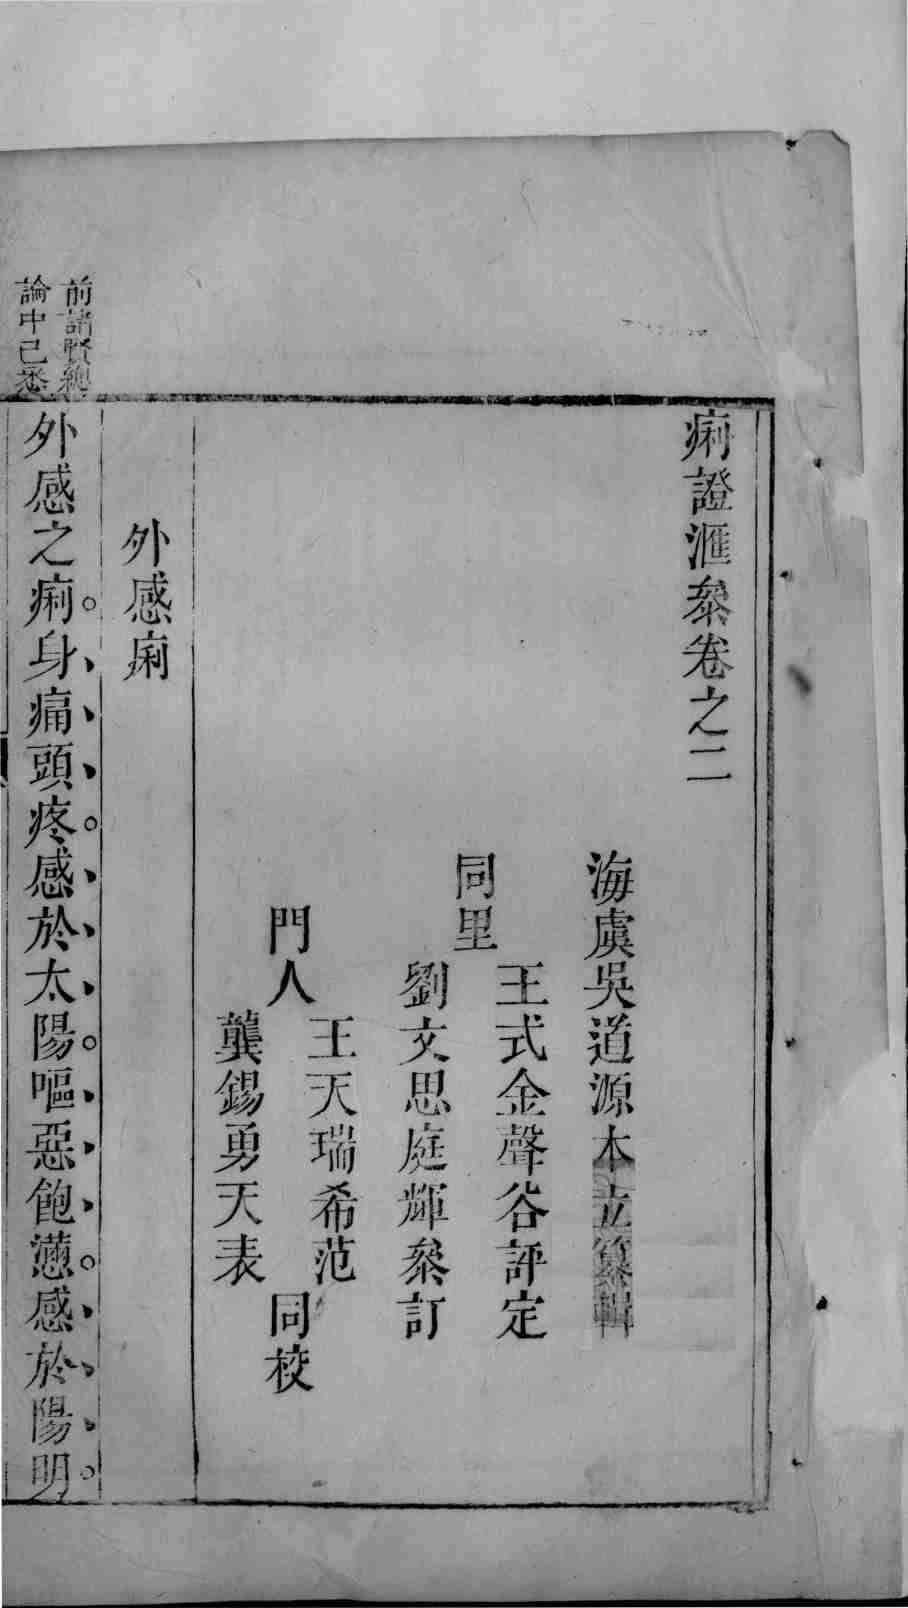 痢證滙叅卷之二
海虞吳道源本立纂輯
同里
王式金聲谷評定
劉文思庭輝叅訂
門人
王天瑞希范
龔錫勇天表
同校
外感痢
前諸賢總
論中已悉
外感之痢身痛頭疼感於太陽嘔惡飽懣感於陽明